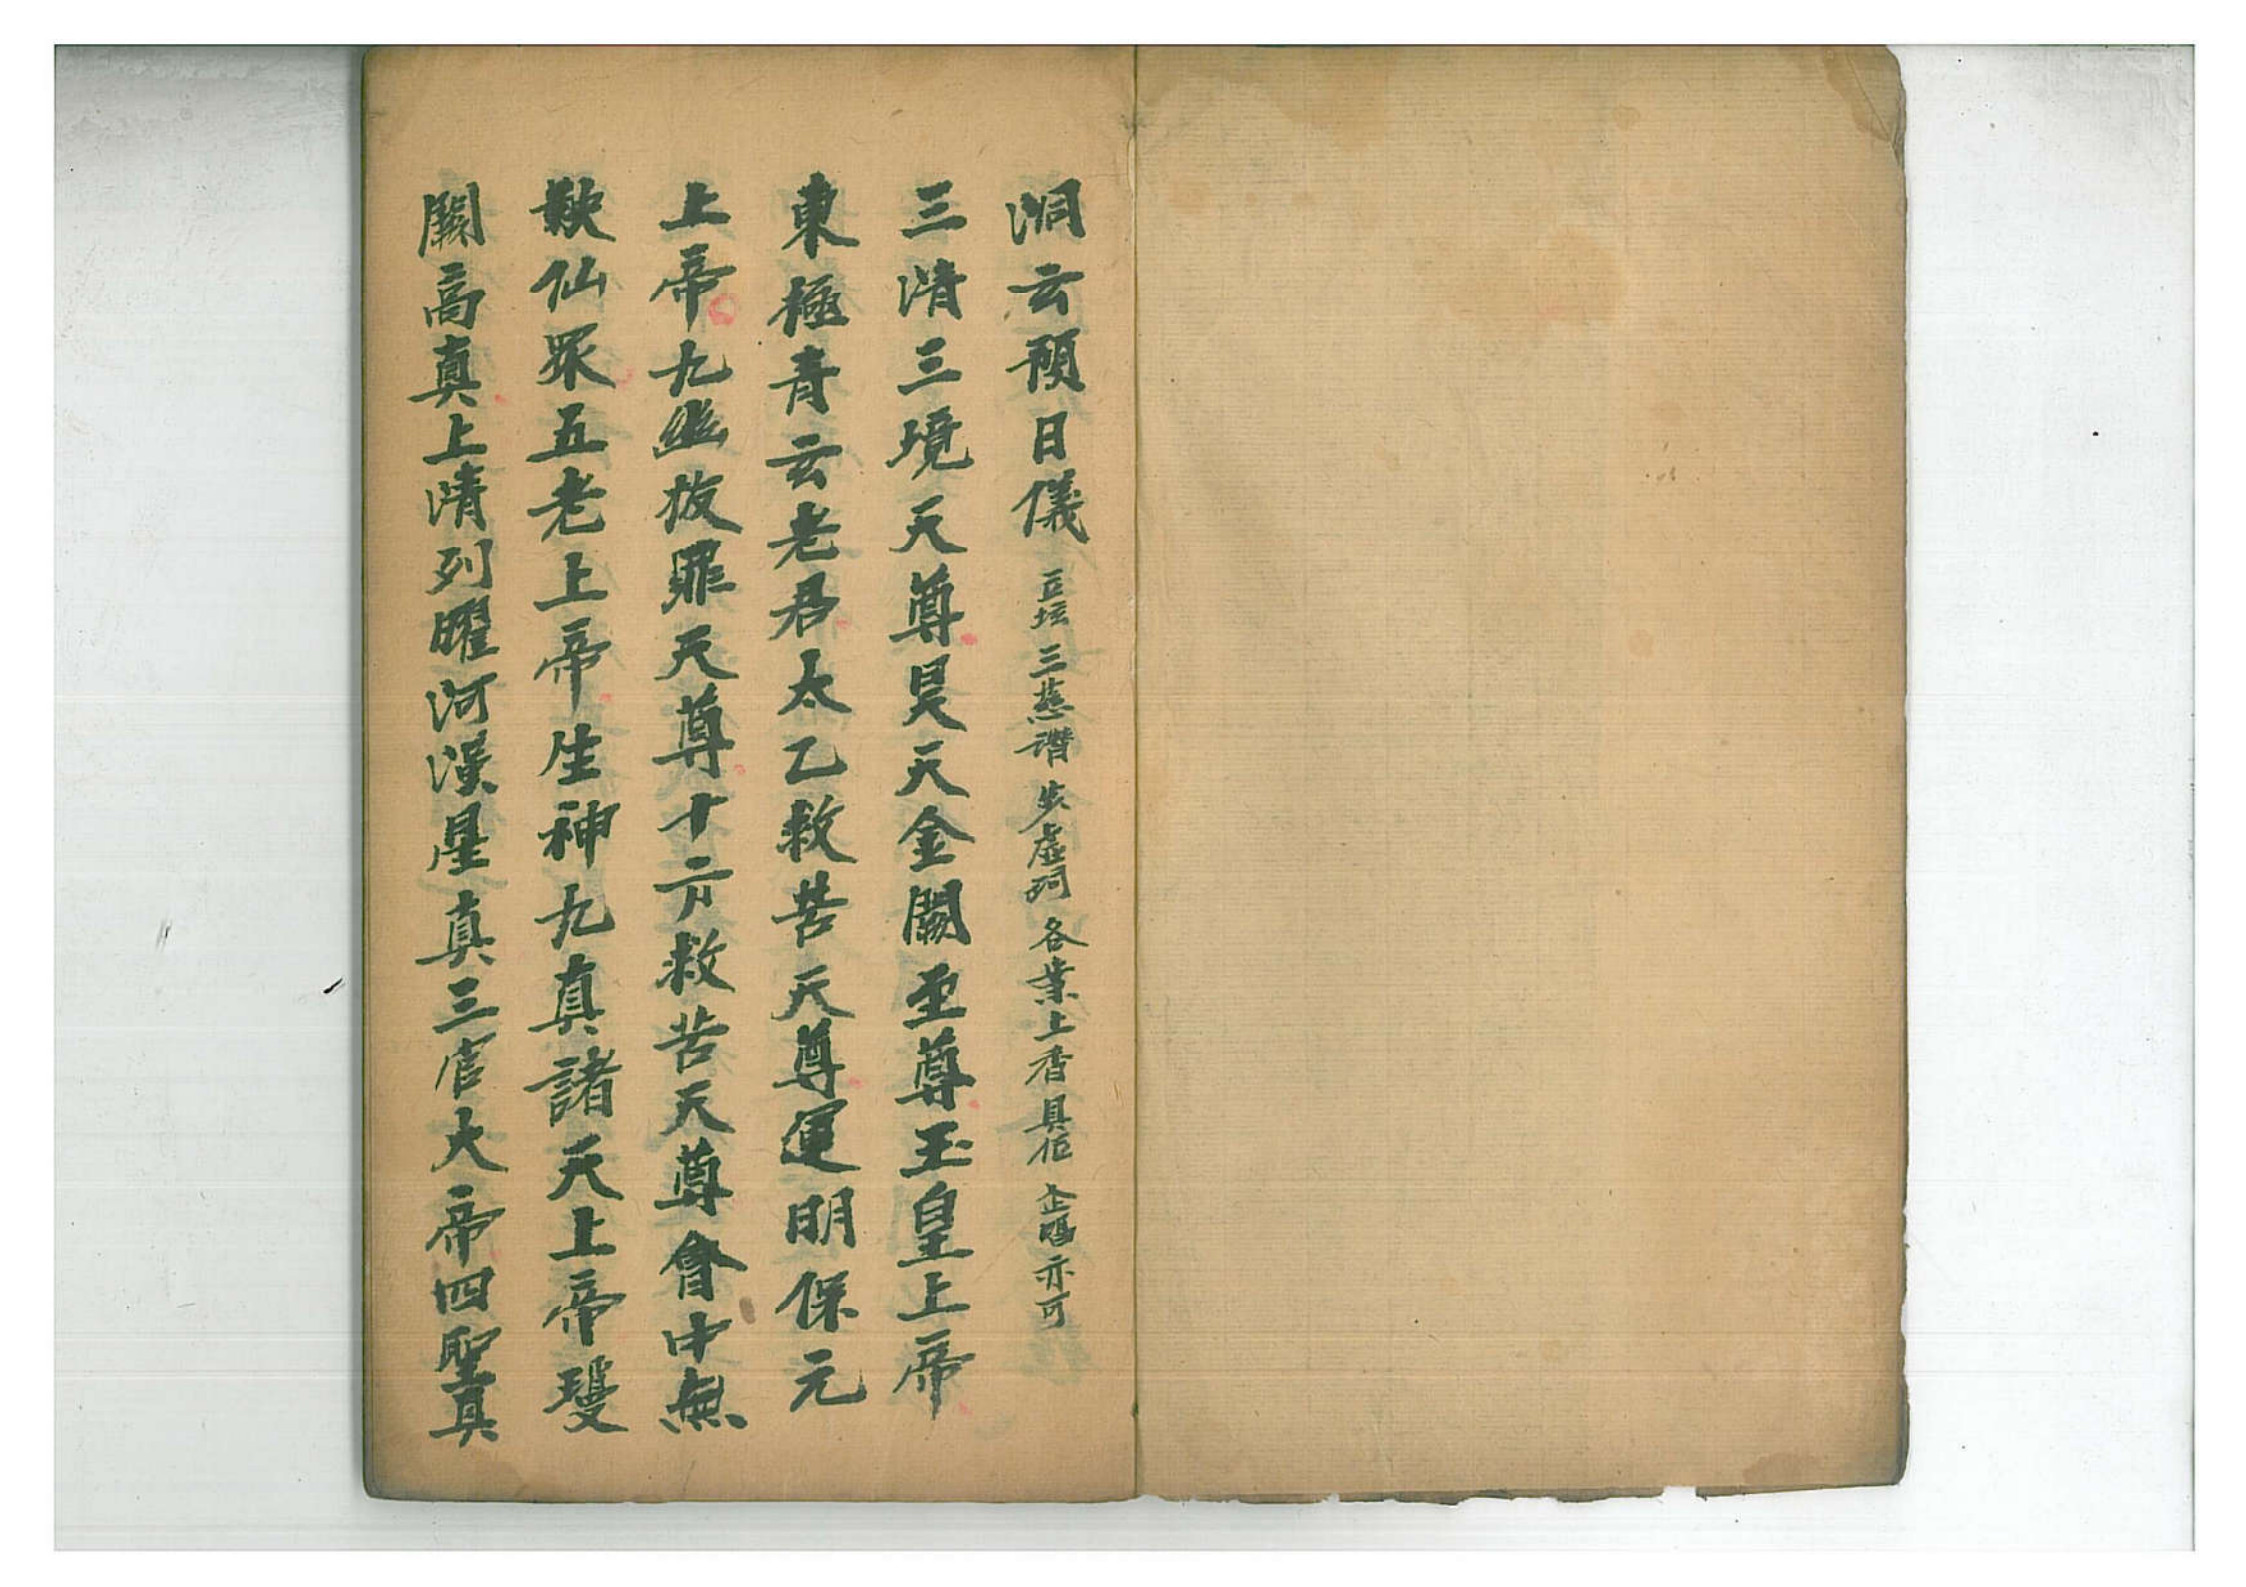 洞云預日儀 立坛 三慈讚 步虛詞 各業上香具位 企臨亦可
三清三境天尊昊天金闕至尊玉皇上帝
東極青云老君太乙救苦天尊運明保元
上帝九幽拔罪天尊十方救苦天尊會中無
鞅仙眾五老上帝生神九真諸天上帝瓊
闕高真上清列曜河漢星真三官大帝四聖真